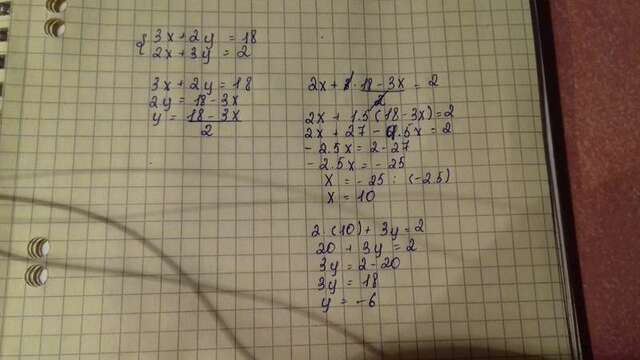 3x + 2y = 18
2x + 3y = 2
3x + 2y = 18
2y = 18 - 3x
y = 18 - 3x
2
2x + 3 · 18 - 3x = 2
2
2x + 1.5(18 - 3x) = 2
2x + 27 - 4.5x = 2
- 2.5x = 2 - 27
- 2.5x = - 25
x = - 25 : (-2.5)
x = 10
2 · (10) + 3y = 2
20 + 3y = 2
3y = 2 - 20
3y = 18
y = - 6